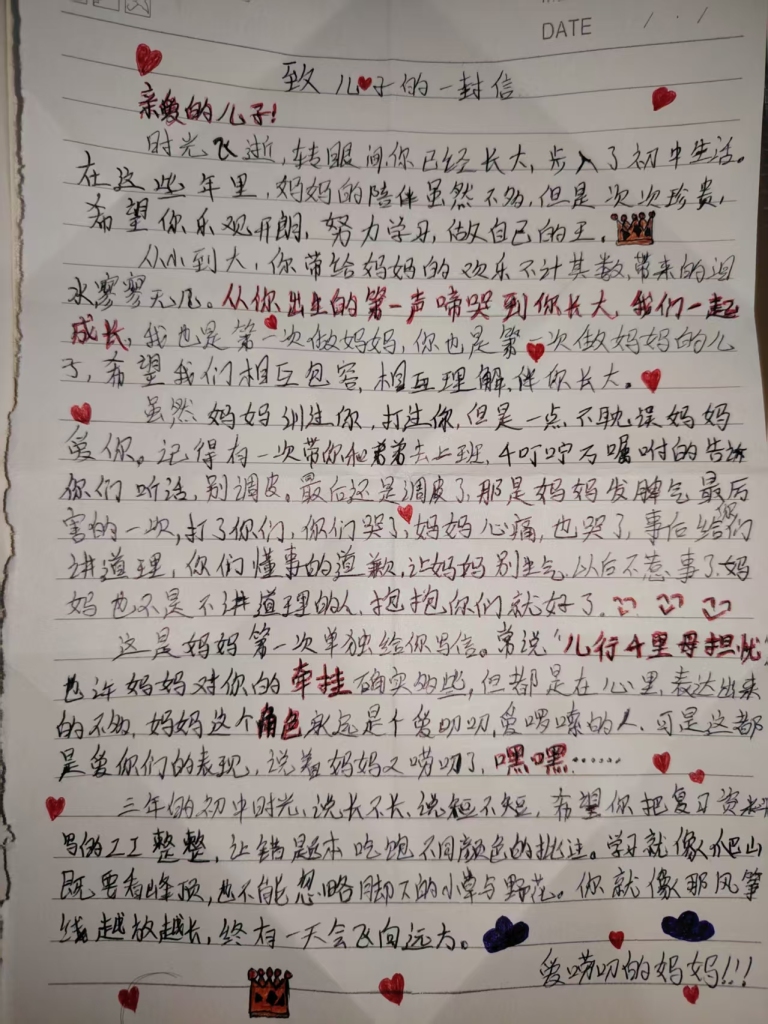 DATE / /
致儿子的一封信
亲爱的儿子!
时光飞逝,转眼间你已经长大,步入了初中生活。
在这些年里,妈妈的陪伴虽然不多,但是次次珍贵,
希望你乐观开朗,努力学习,做自己的王.
从小到大,你带给妈妈的欢乐不计其数,带来的泪
水,寥寥无几。从你出生的第一声啼哭到你长大,我们一起
成长,我也是第一次做妈妈,你也是第一次做妈妈的儿
子,希望我们相互包容,相互理解,伴你长大。
虽然妈妈训过你,打过你,但是一点不耽误妈妈
爱你。记得有一次带你和弟弟去上班,千叮咛万嘱咐的告诉
你们听话,别调皮。最后还是调皮了,那是妈妈发脾气最厉
害的一次,打了你们,你们哭了,妈妈心痛,也哭了,事后给你们
讲道理,你们懂事的道歉,让妈妈别生气,以后不惹事了,妈
妈也不是不讲道理的人,抱抱你们就好了.
这是妈妈第一次单独给你写信。常说"儿行千里母担忧
也许妈妈对你的牵挂确实多些,但都是在心里,表达出来
的不多,妈妈这个角色永远是个爱叨叨,爱啰嗦的人,可是这都
是爱你们的表现,说着妈妈又唠叨了,嘿嘿……
三年的初中时光,说长不长,说短不短,希望你把复习资料
写的工工整整,让错题本吃饱不同颜色的批注。学习就像爬山
既要看峰顶,也不能忽略脚下的小草与野花。你就像那风筝
线越放越长,终有一天会飞向远方。
爱唠叨的妈妈!!!